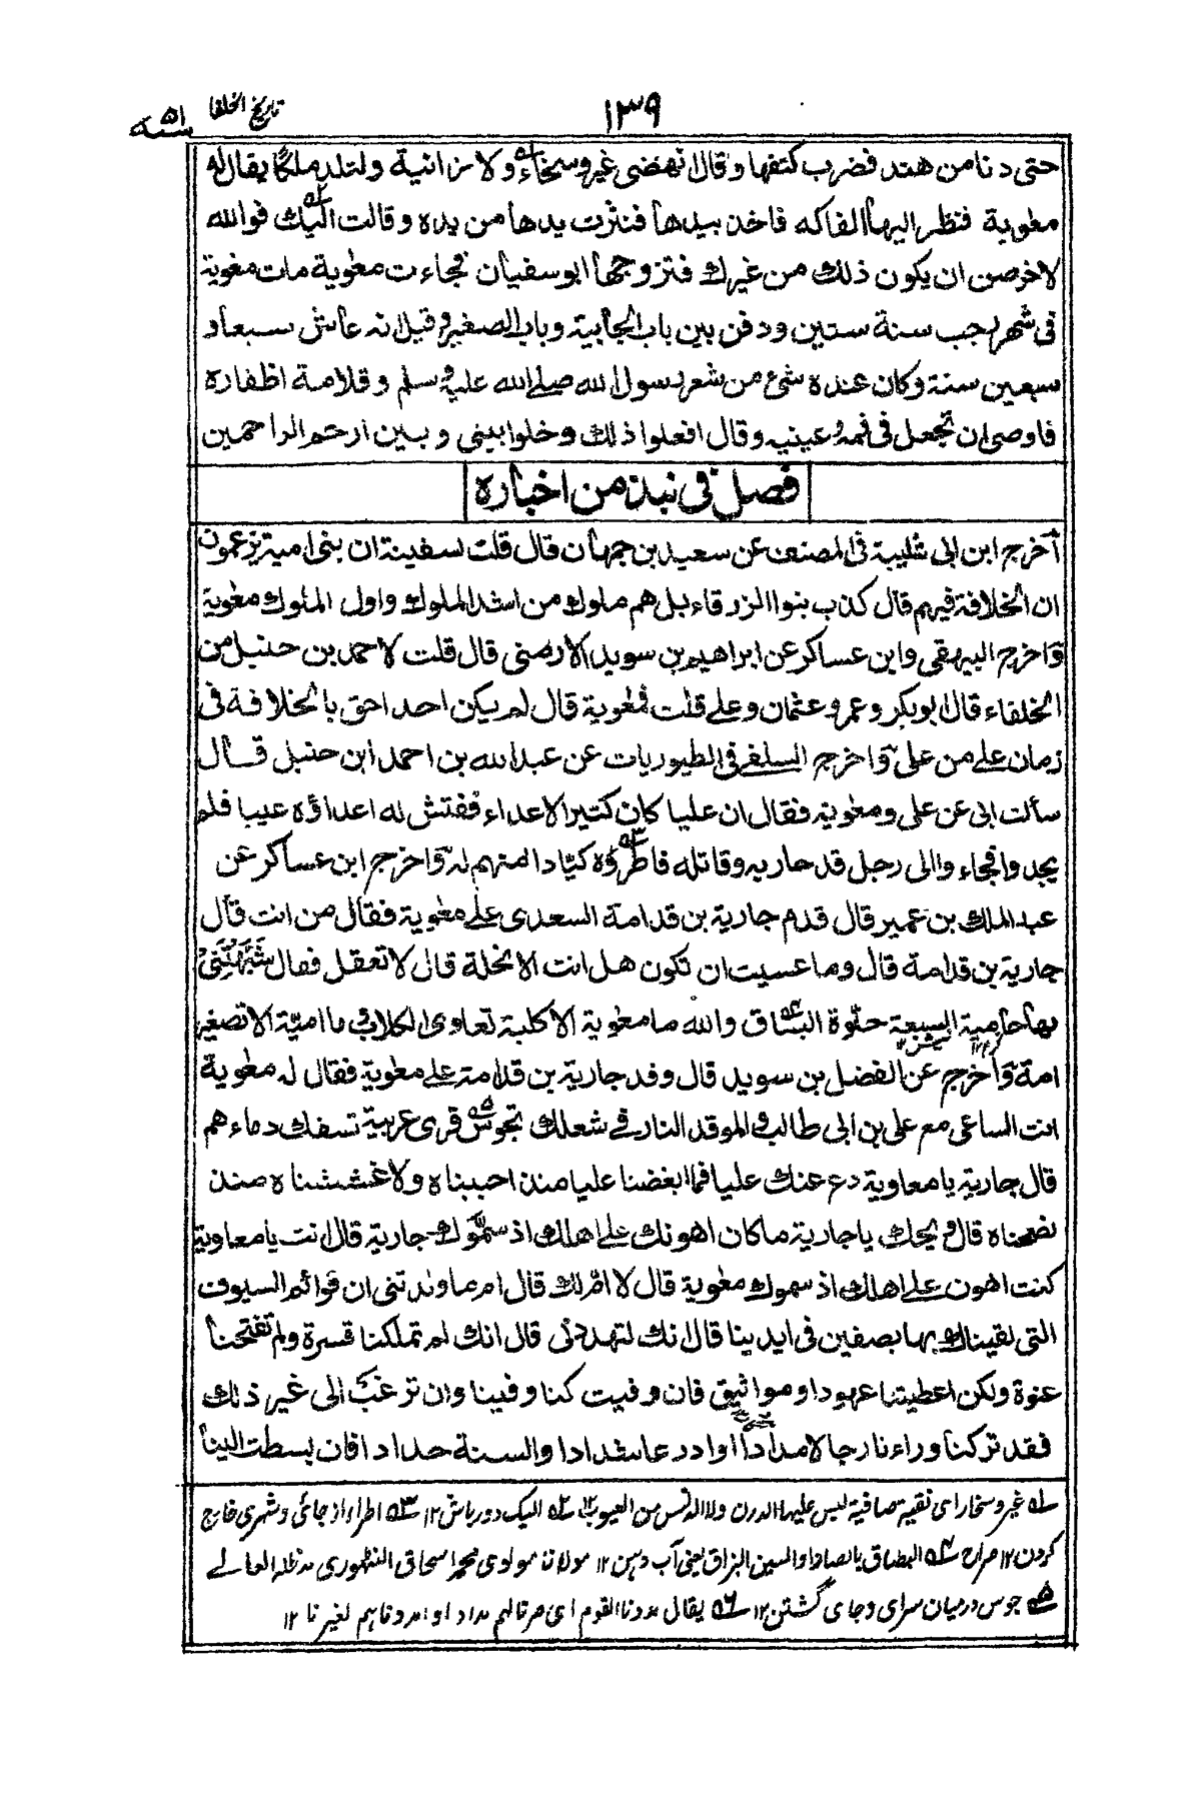 ١٣٩
تاريخ الخلفا
حتى دنا من هند فضرب كتفها وقال انهضى غير وسخاء ولا زانية ولتلدن ملكا يقال له
معٰوية فنظر اليها الفاكه فاخذ بيدها فنثرت يدها من يده وقالت اليك فوالله
لاحرصن ان يكون ذلك من غيرك فتزوجها ابو سفيان فجاءت معٰوية مات معٰوية
فى شهر رجب سنة ستين ودفن بين باب الجابية وباب الصغير وقيل انه عاش سبعا و
سبعين سنة وكان عنده شئ من شعر رسول الله صلے الله عليه و سلم و قلامة اظفاره
فاوصى ان تجعل فى فمه و عينيه وقال افعلوا ذلك وخلوا بينى و بين ارحم الراحمين
فصل فى نبذ من اخباره
اخرج ابن ابى شيبة فى المصنف عن سعيد بن جمهان قال قلت لسفينة ان بنى امية يزعمون
ان الخلافة فيهم قال كذب بنوا الزرقاء بل هم ملوك من اشد الملوك واول الملوك معٰوية
واخرج البيهقى وابن عساكر عن ابراهيم بن سويد الارمنى قال قلت لاحمد بن حنبل من
الخلفاء قال ابوبكر و عمر و عثمان و على قلت فمعٰوية قال لم يكن احد احق بالخلافة فى
زمان علے من علىؓ واخرج السلفى فى الطيوريات عن عبد الله بن احمد ابن حنبل قال
سألت ابى عن على و معٰوية فقال ان عليا كان كثير الاعداء ففتش له اعداؤه عيبا فلم
يجدوا فجاءوا الى رجل قد حاربه وقاتله فاطرؤه كيادا منهم له واخرج ابن عساكر عن
عبد الملك بن عمير قال قدم جارية بن قدامة السعدى علے معٰوية فقال من انت قال
جارية بن قدامة قال وما عسيت ان تكون هل انت الا نحلة قال لا تعقل فقال شَبَّهْتَنِىْ
بها حامية اللسعة حلوة البساق والله ما معٰوية الا كلبة تعاوى الكلاب و ما امية الا تصغير
امة واخرج عن الفضل بن سويد قال وفد جارية بن قدامة علے معٰوية فقال له معٰوية
انت الساعى مع على بن ابى طالب و الموقد النار فى شعلك تجوس قرى عربية تسفك دماءهم
قال جارية يا معاوية دع عنك عليا فما ابغضنا عليا منذ احببناه ولا غششناه منذ
نصحناه قال ويحك يا جارية ما كان اهونك علے اهلك اذ سمّوك جارية قال انت يا معاوية
كنت اهون علے اهلك اذ سموك معٰوية قال لا ام لك قال ام ما ولدتنى ان قوائم السيوف
التى لقيناك بها بصفين فى ايدينا قال انك لتهددنى قال انك لم تملكنا قسرة ولم تفتحنا
عنوة ولكن اعطيتنا عهودا و مواثيق فان وفيت لنا وفينا وان ترغب الى غير ذلك
فقد تركنا وراءنا رجالا مدادا و ادرعا شدادا والسنة حدادا فان بسطت الينا
لے غير وسخاء اى نقية صافية ليس عليها الدرن ولا الدنس من العيوب ١٢ اليك دور باش ١٢ اطراء از جائى و شهرى خارج
كردن ١٢ صراح البصاق بالصاد والسين البزاق يعنى آب دهن ١٢ مولانا مولوى محمد اسحاق مد ظله العالے
جوس درميان سراى و جاى گشتن ١٢ يقال مددنا القوم اى صرنا لهم مددا و امددناهم لغيرنا ١٢